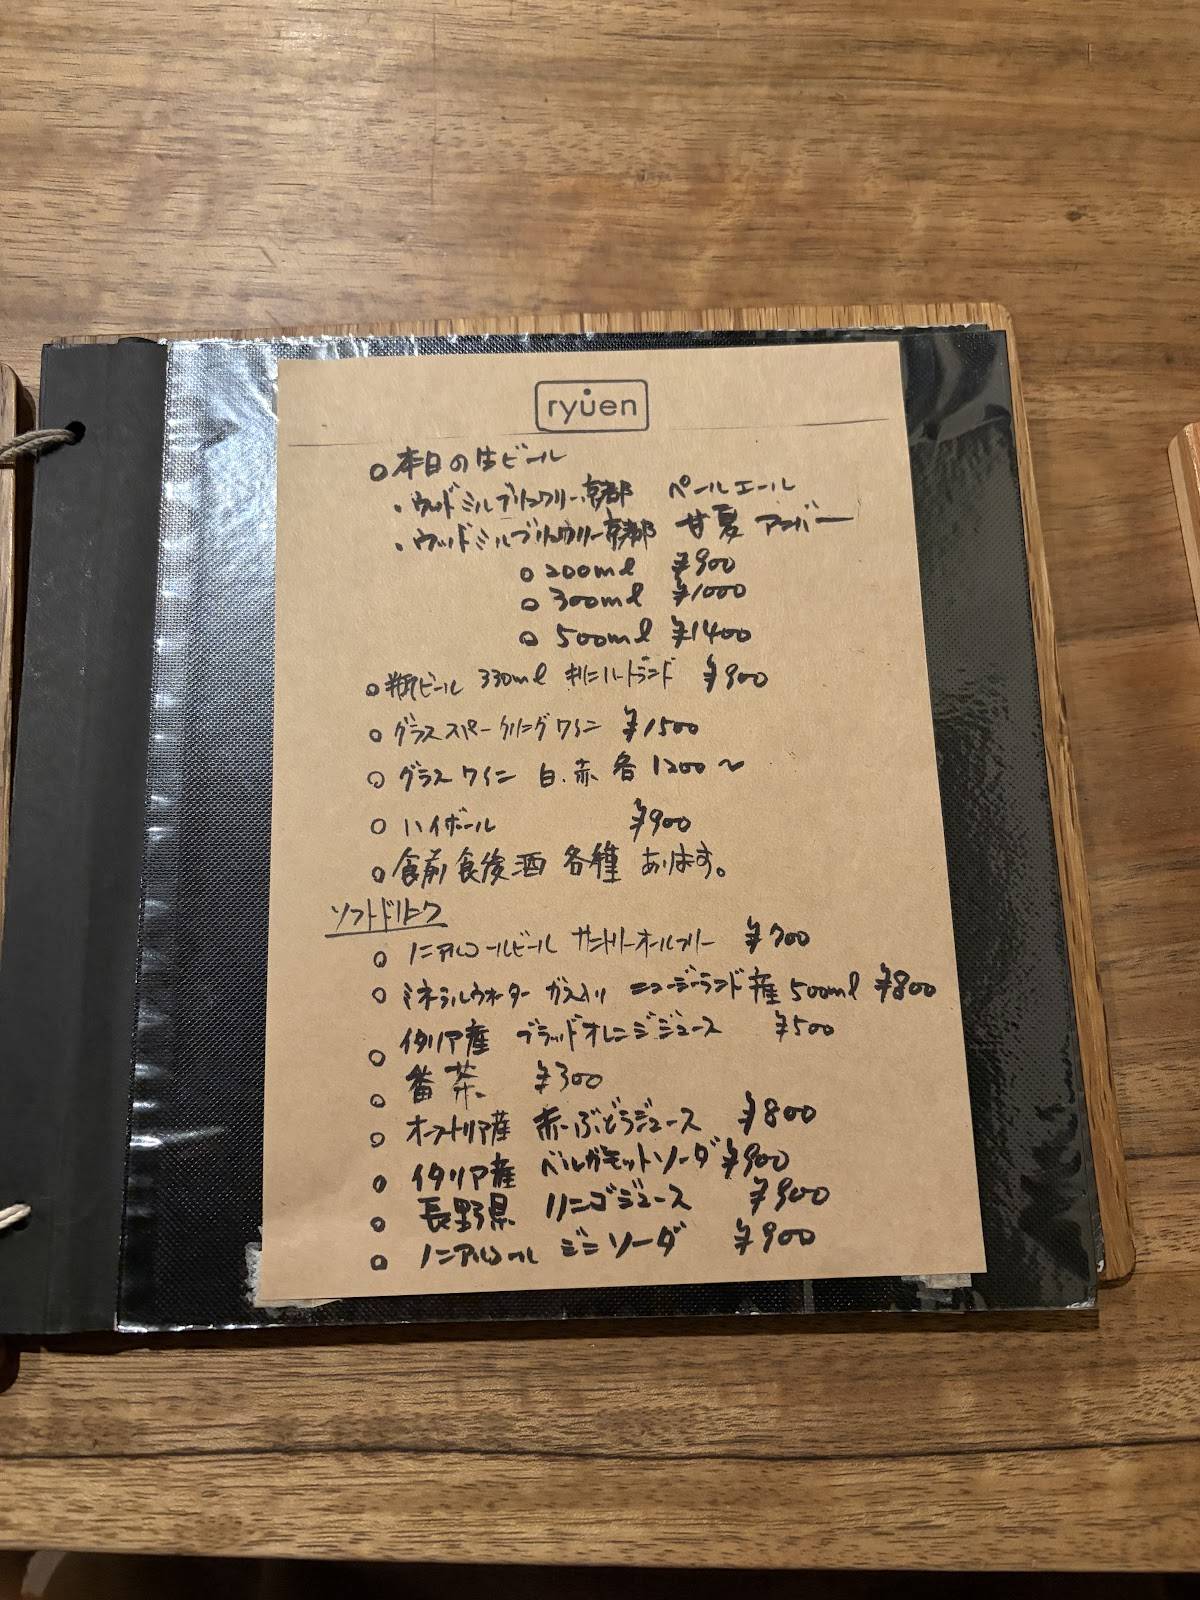 ryuen
○本日の生ビール
・ウッドミルブリュワリー京都 ペールエール
・ウッドミルブリュワリー京都 甘夏 アンバー
○200ml ¥900
○300ml ¥1000
○500ml ¥1400
○瓶ビール 330ml キリンハートランド ¥900
○グラススパークリングワイン ¥1500
○グラスワイン 白、赤 各1200～
○ハイボール ¥900
○食前食後酒 各種 あります。
ソフトドリンク
○ノンアルコールビール サントリーオールフリー ¥700
○ミネラルウォーター ガス入り ニュージーランド産 500ml ¥800
○イタリア産 ブラッドオレンジジュース ¥500
○番茶 ¥300
○オーストリア産 赤ぶどうジュース ¥800
○イタリア産 ベルガモットソーダ ¥900
○長野県 リンゴジュース ¥900
○ノンアルコール ジンソーダ ¥900